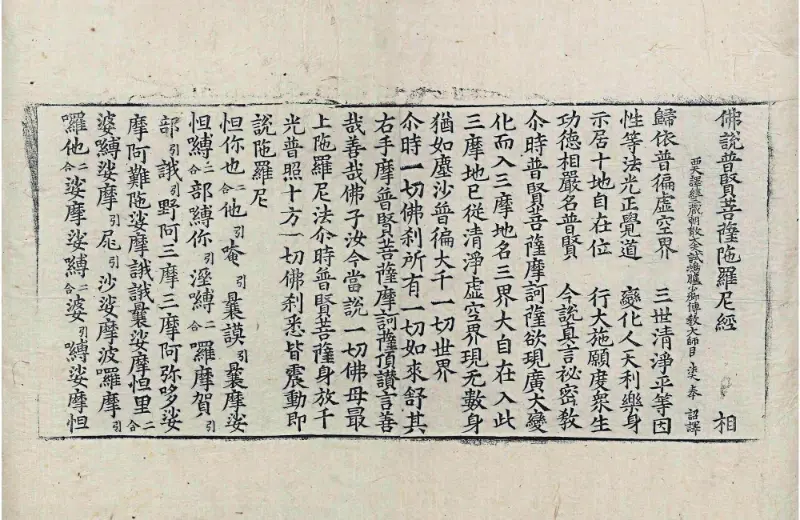 佛說普賢菩薩陁羅尼經 相
西天譯經三藏朝散大夫試鴻臚少卿傳教大師臣 法天 奉 詔譯
歸依普徧虛空界 三世清淨平等因
性等法光正覺道 變化人天利樂身
示居十地自在位 行大施願度衆生
功德相嚴名普賢 今說真言祕密教
尒時普賢菩薩摩訶薩欲現廣大變
化而入三摩地名三界大自在入此
三摩地已從清淨虛空界現无數身
猶如塵沙普徧大千一切世界
尒時一切佛刹所有一切如來舒其
右手摩普賢菩薩摩訶薩頂讚言善
哉善哉佛子汝今當說一切佛母最
上陁羅尼法尒時普賢菩薩身放千
光普照十方一切佛刹悉皆震動即
說陁羅尼
怛你也二合他引唵引曩謨引曩摩娑
怛縛二合部縛你引溼縛二合囉摩賀引
部引誐引野阿三摩三摩阿弥哆娑
摩阿難陁娑摩誐誐曩娑摩怛里二合
婆縛娑摩引尾引沙娑摩波囉摩引
囉他二合娑摩娑縛二合婆引縛娑摩怛